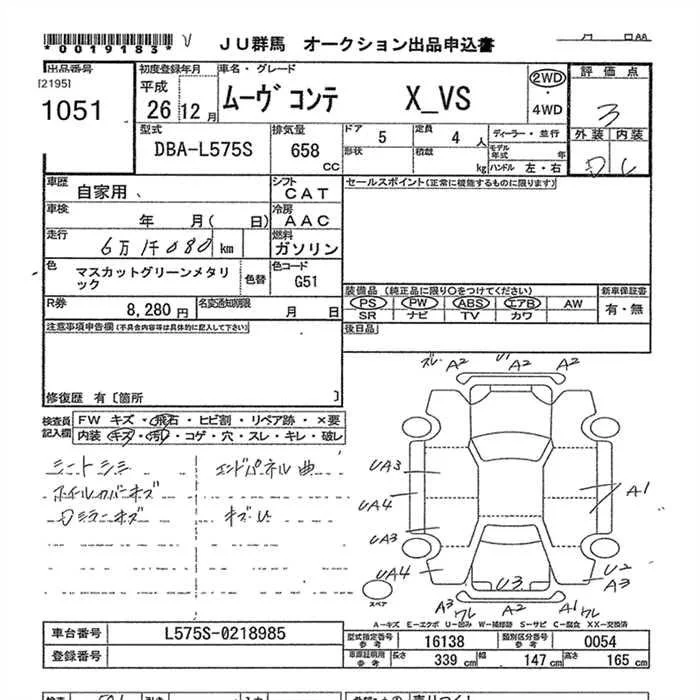 *0019183*
JU群馬 オークション出品申込書
AA
出品番号 初度登録年月 車名・グレード 評価点
[2195]
1051 平成 26 12月 ムーヴ コンテ X_VS 2WD ・ 4WD 3
型式 排気量 ドア 5 定員 4 人 ディーラー・並行 外装 内装
DBA-L575S 658 CC 形状 積載 kg モデル年式 年 ハンドル 左・右 D
車歴 自家用 シフト CAT セールスポイント(正常に機能するものに限ります)
車検 年 月( 日) 冷房 AAC
走行 6万1千080 km 燃料 ガソリン
色 マスカットグリーンメタリック 色替 色コード G51
装備品(純正品に限り○をつけてください) 新車保証書
R券 8,280円 名変通知期限 月 日
PS PW ABS エアB AW 有・無
SR ナビ TV カワ
注意事項申告欄(不具合内容等は具体的に記入して下さい) 後日品
修復歴 有[箇所 ]
検査員記入欄 FW キズ・飛石・ヒビ割・リペア跡・×要
内装 キズ・汚れ・コゲ・穴・スレ・キレ・破レ
シートシミ エンドパネル曲
ホイルカバーキズ キズU
Dミラーキズ
ズレ A2 U1 A2 A2
UA3
UA4 A1
UA3
UA4 U3 U2
A3
A3 ワレ A1 ワレ
スペア
A-キズ E-エクボ U-凹み W-補修跡 S-サビ C-腐食 XX-交換済
車台番号 L575S-0218985 型式指定番号 参考 16138 類別区分番号 参考 0054
登録番号 車庫証明用 参考 長さ 339 cm 幅 147 cm 高さ 165 cm